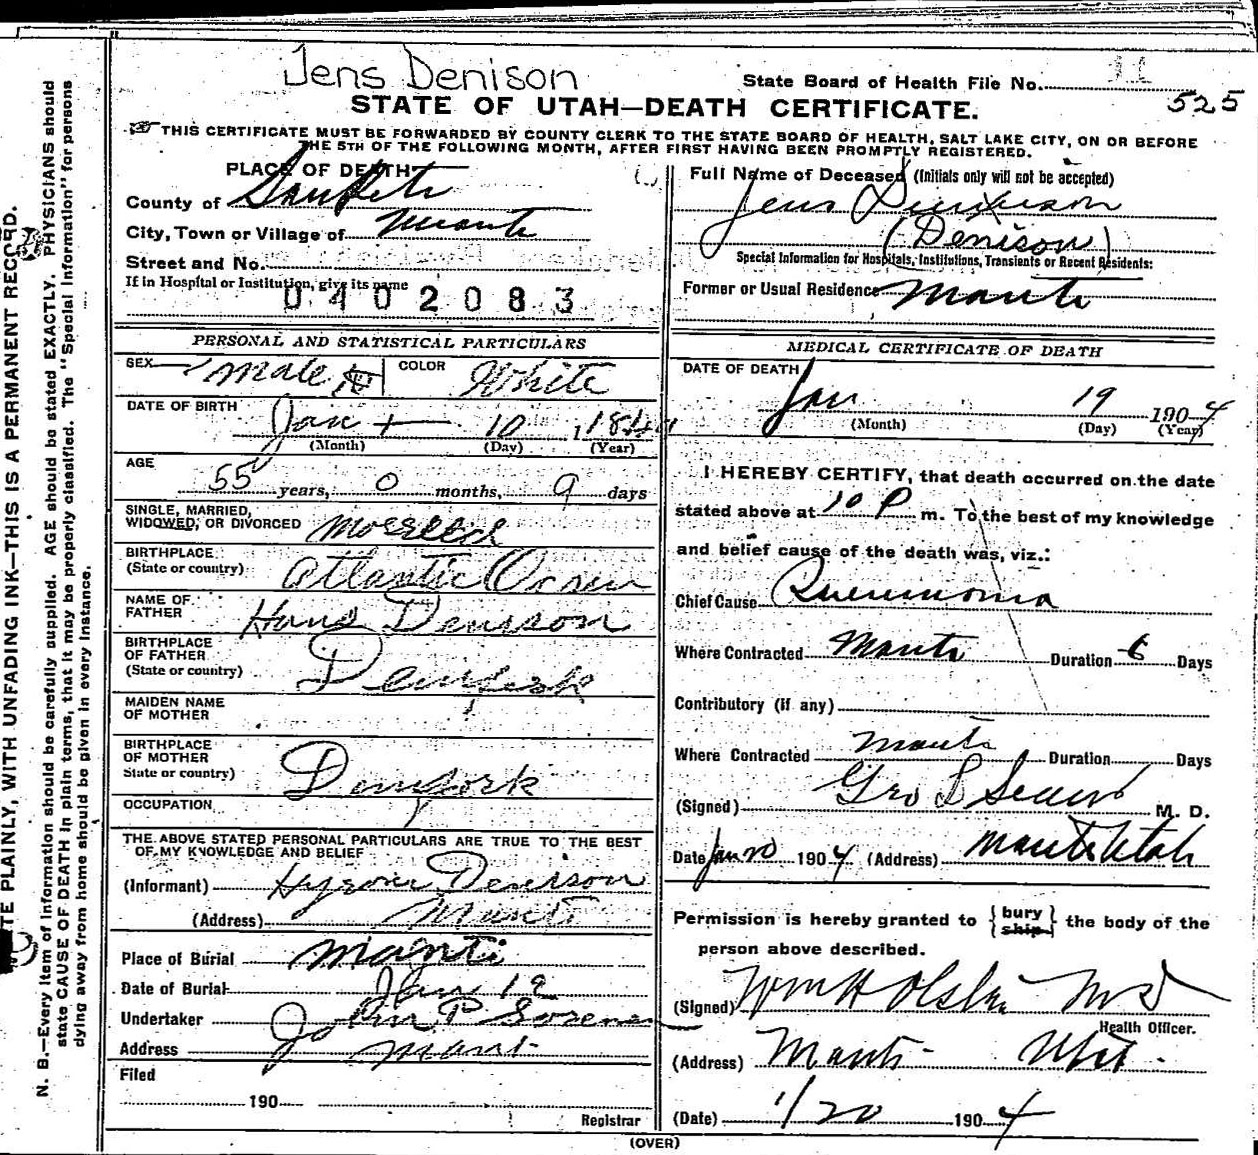 Jens Denison
State Board of Health File No.
525
STATE OF UTAH—DEATH CERTIFICATE.
THIS CERTIFICATE MUST BE FORWARDED BY COUNTY CLERK TO THE STATE BOARD OF HEALTH, SALT LAKE CITY, ON OR BEFORE
THE 5TH OF THE FOLLOWING MONTH, AFTER FIRST HAVING BEEN PROMPTLY REGISTERED.
PLACE OF DEATH
County of Sanpete
City, Town or Village of Manti
Street and No.
If in Hospital or Institution, give its name
0402083
Full Name of Deceased (Initials only will not be accepted)
Jens
(Denison)
Special Information for Hospitals, Institutions, Transients or Recent Residents:
Former or Usual Residence Manti
PERSONAL AND STATISTICAL PARTICULARS
SEX male COLOR White
DATE OF BIRTH Jan 10
(Month) (Day) (Year)
AGE
55 years, 0 months, 9 days
SINGLE, MARRIED,
WIDOWED, OR DIVORCED
BIRTHPLACE
(State or country) Atlantic
NAME OF
FATHER Hans Denison
BIRTHPLACE
OF FATHER
(State or country)
MAIDEN NAME
OF MOTHER
BIRTHPLACE
OF MOTHER
State or country)
OCCUPATION
THE ABOVE STATED PERSONAL PARTICULARS ARE TRUE TO THE BEST
OF MY KNOWLEDGE AND BELIEF
(Informant) Denison
(Address) Manti
Place of Burial Manti
Date of Burial Jan 19
Undertaker John P Sorensen
Address Manti
Filed
190
Registrar
MEDICAL CERTIFICATE OF DEATH
DATE OF DEATH
Jan 19 1904
(Month) (Day) (Year)
I HEREBY CERTIFY, that death occurred on the date
stated above at 10 P m. To the best of my knowledge
and belief cause of the death was, viz.:
Chief Cause Pneumonia
Where Contracted Manti Duration 6 Days
Contributory (if any)
Where Contracted Manti Duration Days
(Signed) Geo L M. D.
Date Jan 20 1904 (Address) Manti Utah
Permission is hereby granted to {bury ship} the body of the
person above described.
(Signed) Wm H Olsten M D
Health Officer.
(Address) Manti Utah
(Date) 1/20 1904
(OVER)
N. B.—Every item of information should be carefully supplied. AGE should be stated EXACTLY. PHYSICIANS should
state CAUSE OF DEATH in plain terms, that it may be properly classified. The "Special Information" for persons
dying away from home should be given in every instance.
PLAINLY, WITH UNFADING INK—THIS IS A PERMANENT RECORD.